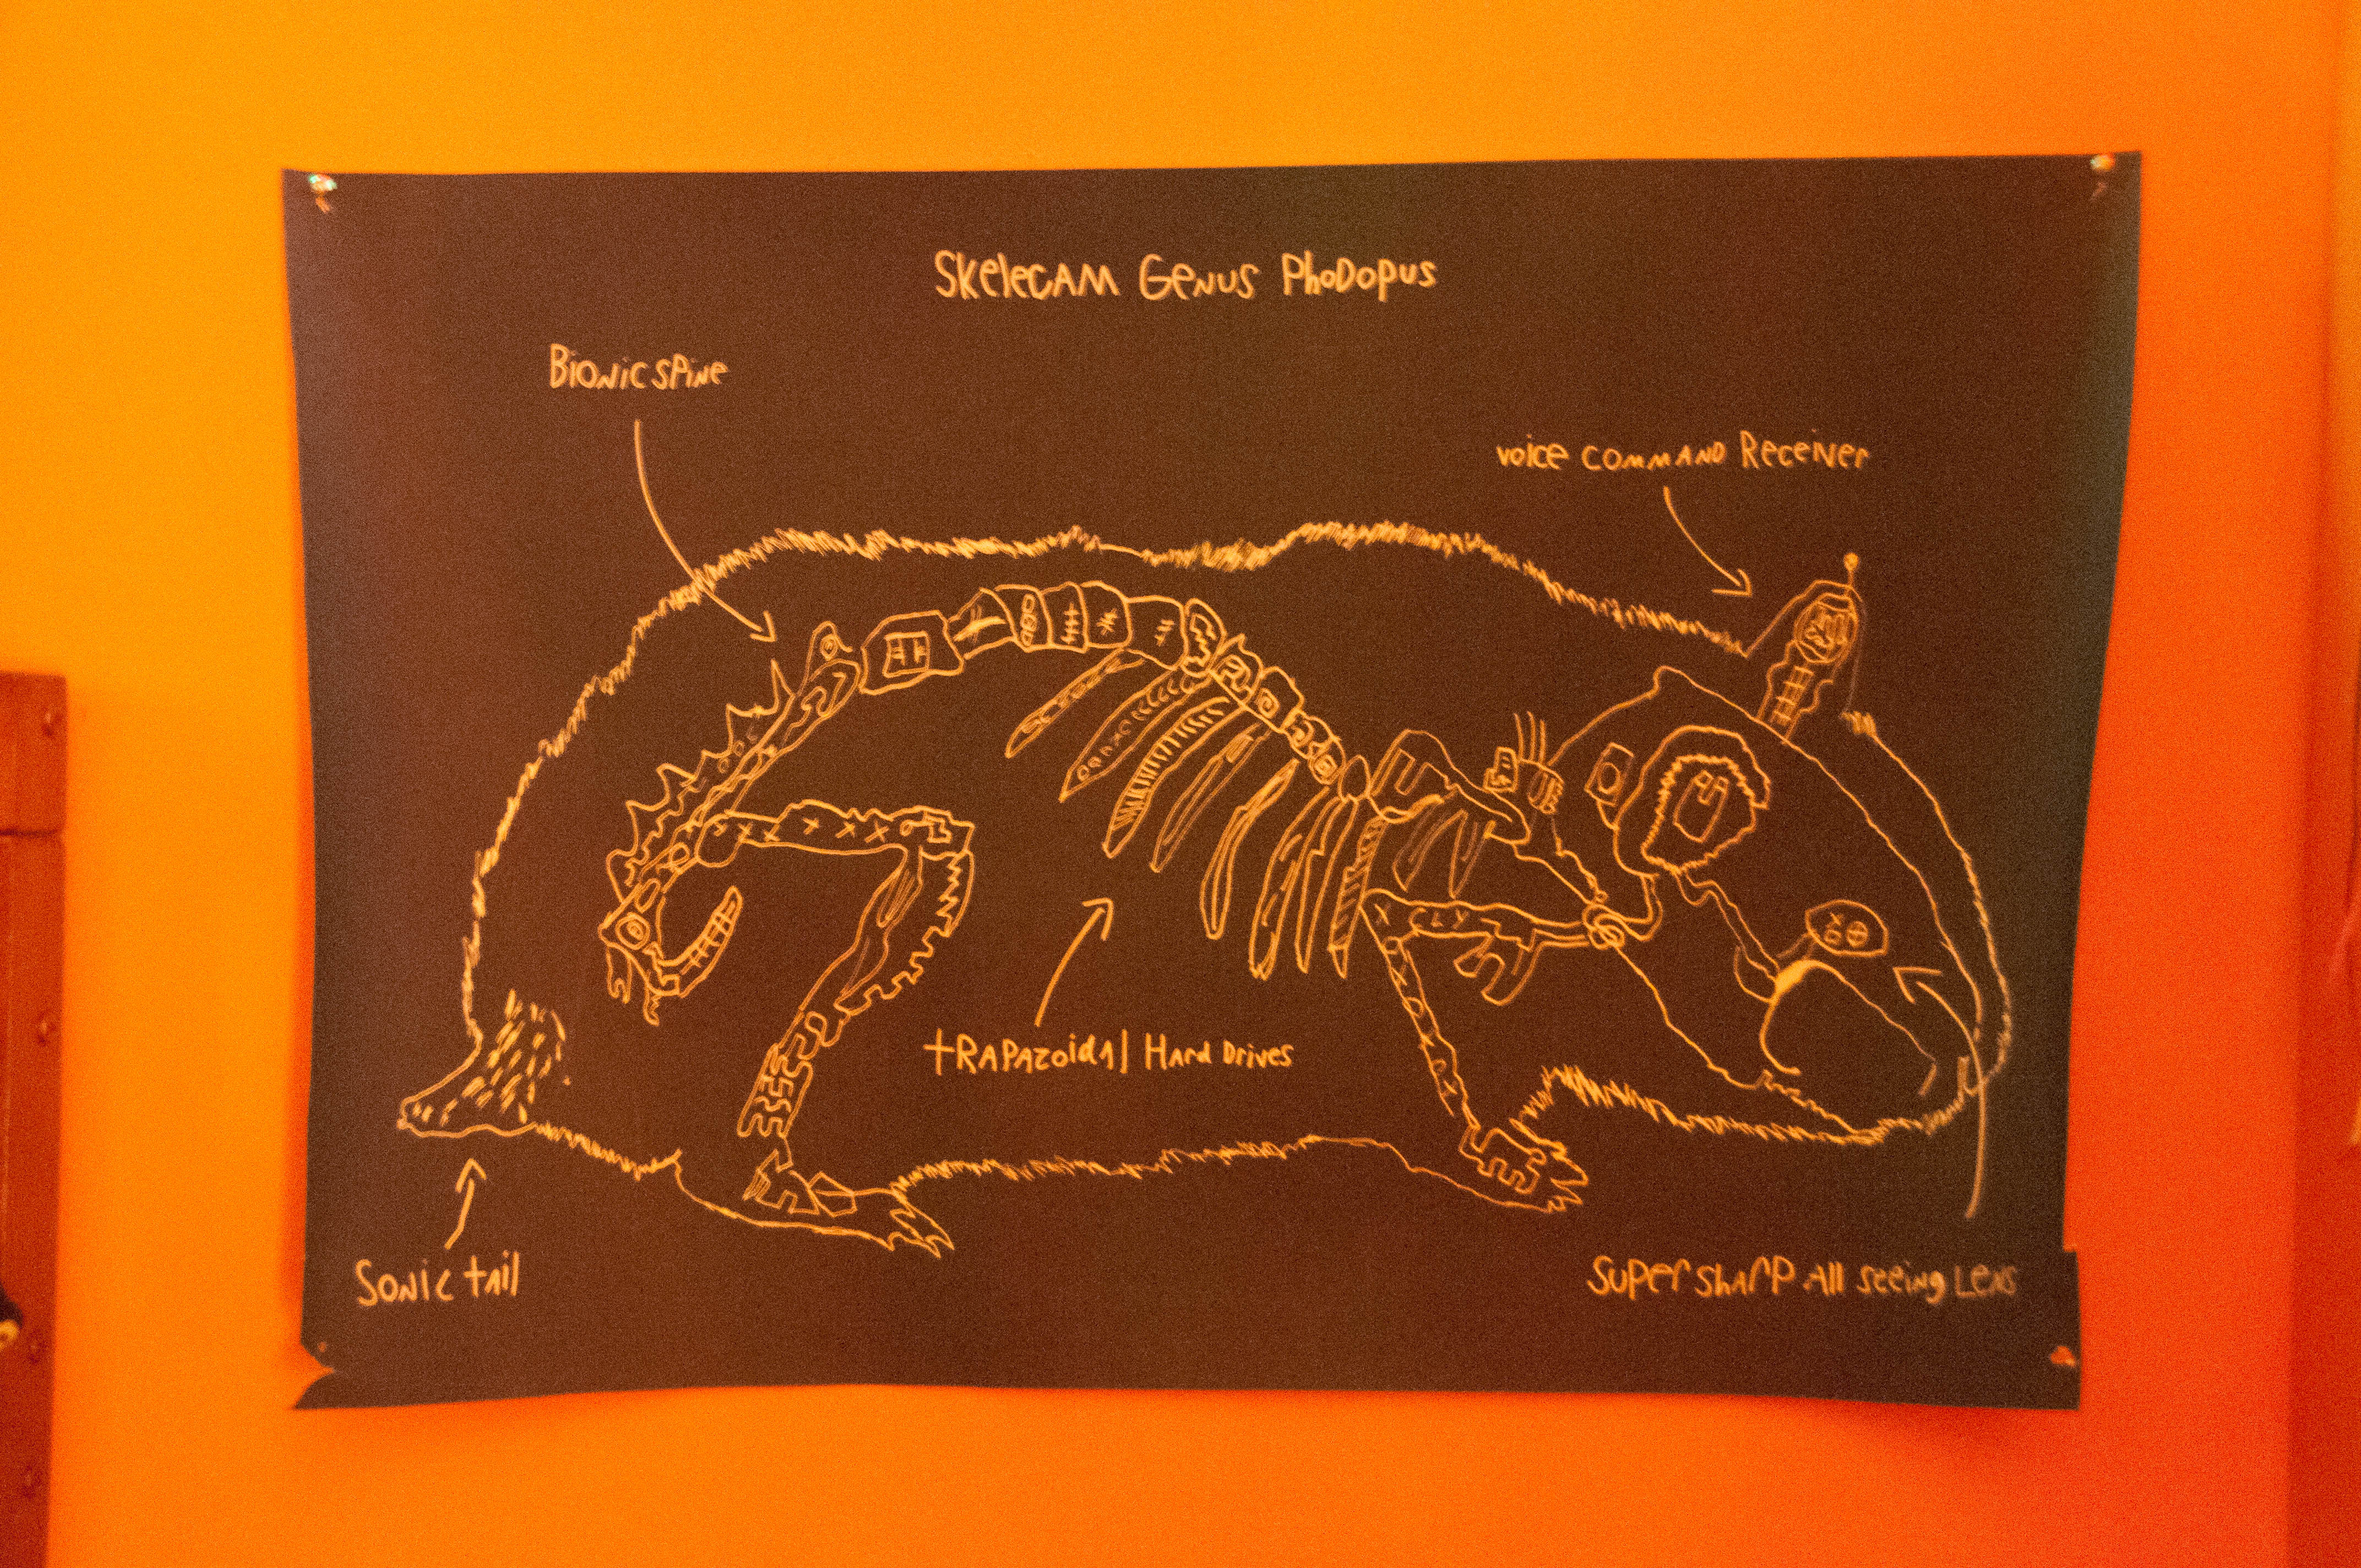 Skelecam Genus Phodopus
Bionic spine
voice command Receiver
trapazoidal Hard Drives
Sonic tail
Super sharp All seeing Lens